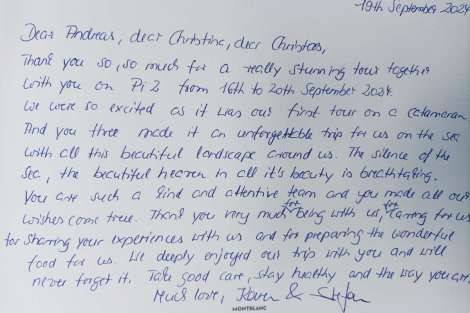 19th September 2024
Dear Andreas, dear Christine, dear Christos,
Thank you so, so much for a really stunning tour together
with you on Pi 2 from 16th to 20th September 2024.
We were so excited as it was our first tour on a catamaran
And you three made it an unforgettable trip for us on the sea
with all this beautiful landscape around us. The silence of the
sea, the beautiful heaven in all it's beauty is breathtaking.
You are such a kind and attentive team and you made all our
wishes come true. Thank you very much for being with us, for caring for us
for sharing your experiences with us and for preparing the wonderful
food for us. We deeply enjoyed our trip with you and will
never forget it. Take good care, stay healthy and the way you are,
Much love, Karen & Stefan
MONTBLANC